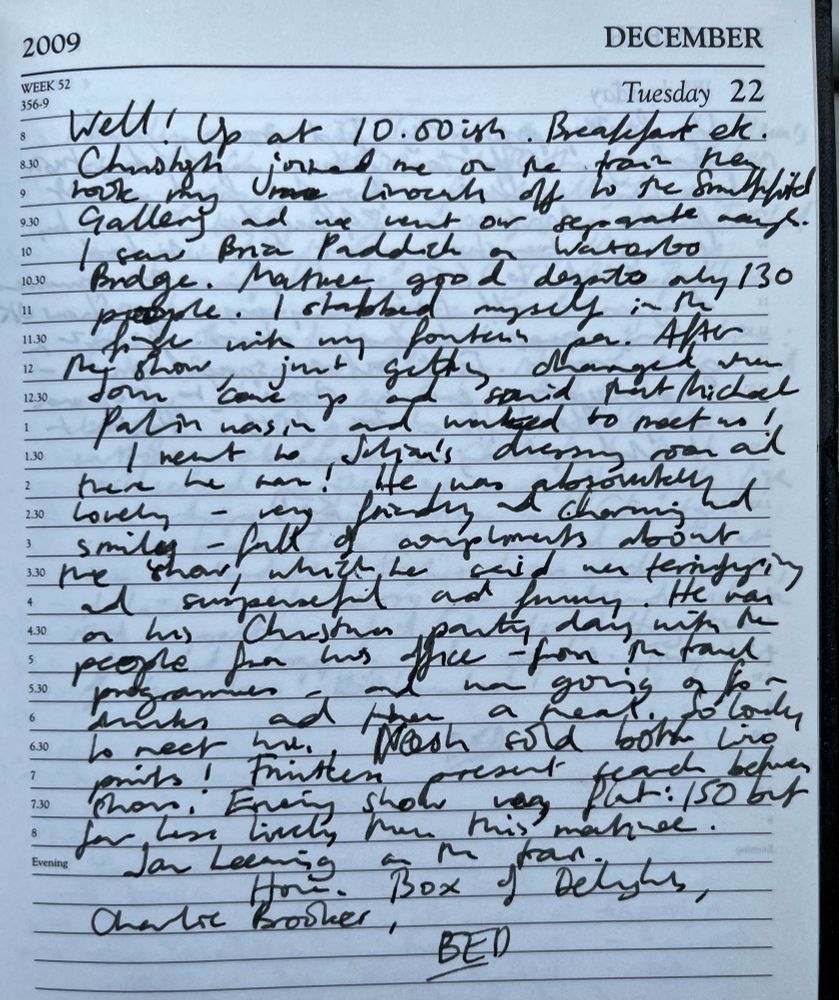 2009 DECEMBER
WEEK 52
356-9
Tuesday 22
8 Well! Up at 10.00ish. Breakfast etc.
8.30 Christoph joined me on the train then
9 took my linocuts off to the Smithfield
9.30 Gallery and we went our separate ways.
10 I saw Brian Paddick on Waterloo
10.30 Bridge. Matinee good despite only 130
11 people. I stabbed myself in the
11.30 finger with my fountain pen. After
12 the show, just getting changed when
12.30 came up and said that Michael
1 Palin was in and wanted to meet us!
1.30 I went to Julian's dressing room and
2 there he was! He was absolutely
2.30 lovely - very friendly and charming and
3 smiley - full of compliments about
3.30 the show, which he said was terrifying
4 and suspenseful and funny. He was
4.30 on his Christmas party day with the
5 people from his office - from the travel
5.30 programmes - and was going on for
6 drinks and then a meal. So lovely
6.30 to meet him. sold both lino
7 prints! Fruitless present search between
7.30 shows. Evening show very flat: 150 but
8 far less lively than this matinee.
Evening Jan Leeming on the train.
Home. Box of Delights,
Charlie Brooker,
BED